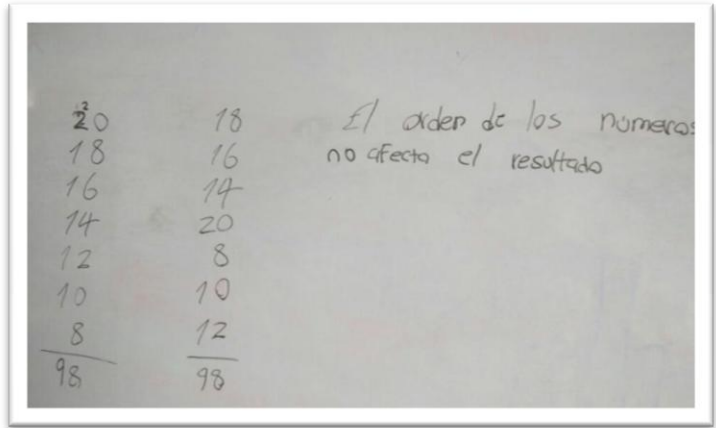 2
20
18
16
14
12
10
8
98
18
16
14
20
8
10
12
98
El orden de los números
no afecta el resultado